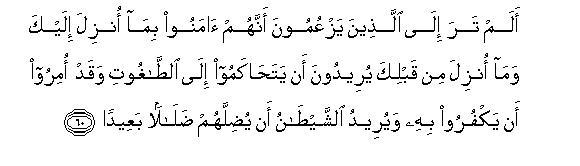 أَلَمْ تَرَ إِلَى ٱلَّذِينَ يَزْعُمُونَ أَنَّهُمْ ءَامَنُوا۟ بِمَآ أُنزِلَ إِلَيْكَ
وَمَآ أُنزِلَ مِن قَبْلِكَ يُرِيدُونَ أَن يَتَحَاكَمُوٓا۟ إِلَى ٱلطَّٰغُوتِ وَقَدْ أُمِرُوٓا۟
أَن يَكْفُرُوا۟ بِهِۦ وَيُرِيدُ ٱلشَّيْطَٰنُ أَن يُضِلَّهُمْ ضَلَٰلًۢا بَعِيدًا ٦٠